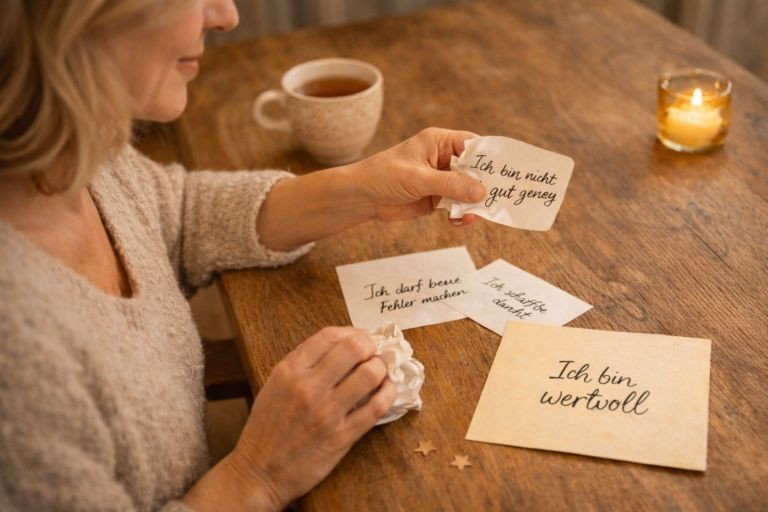 Ich bin nicht
gut geney
Ich darf beue
Fehler machen
Ich schaffbe
danht
Ich bin
wertvoll